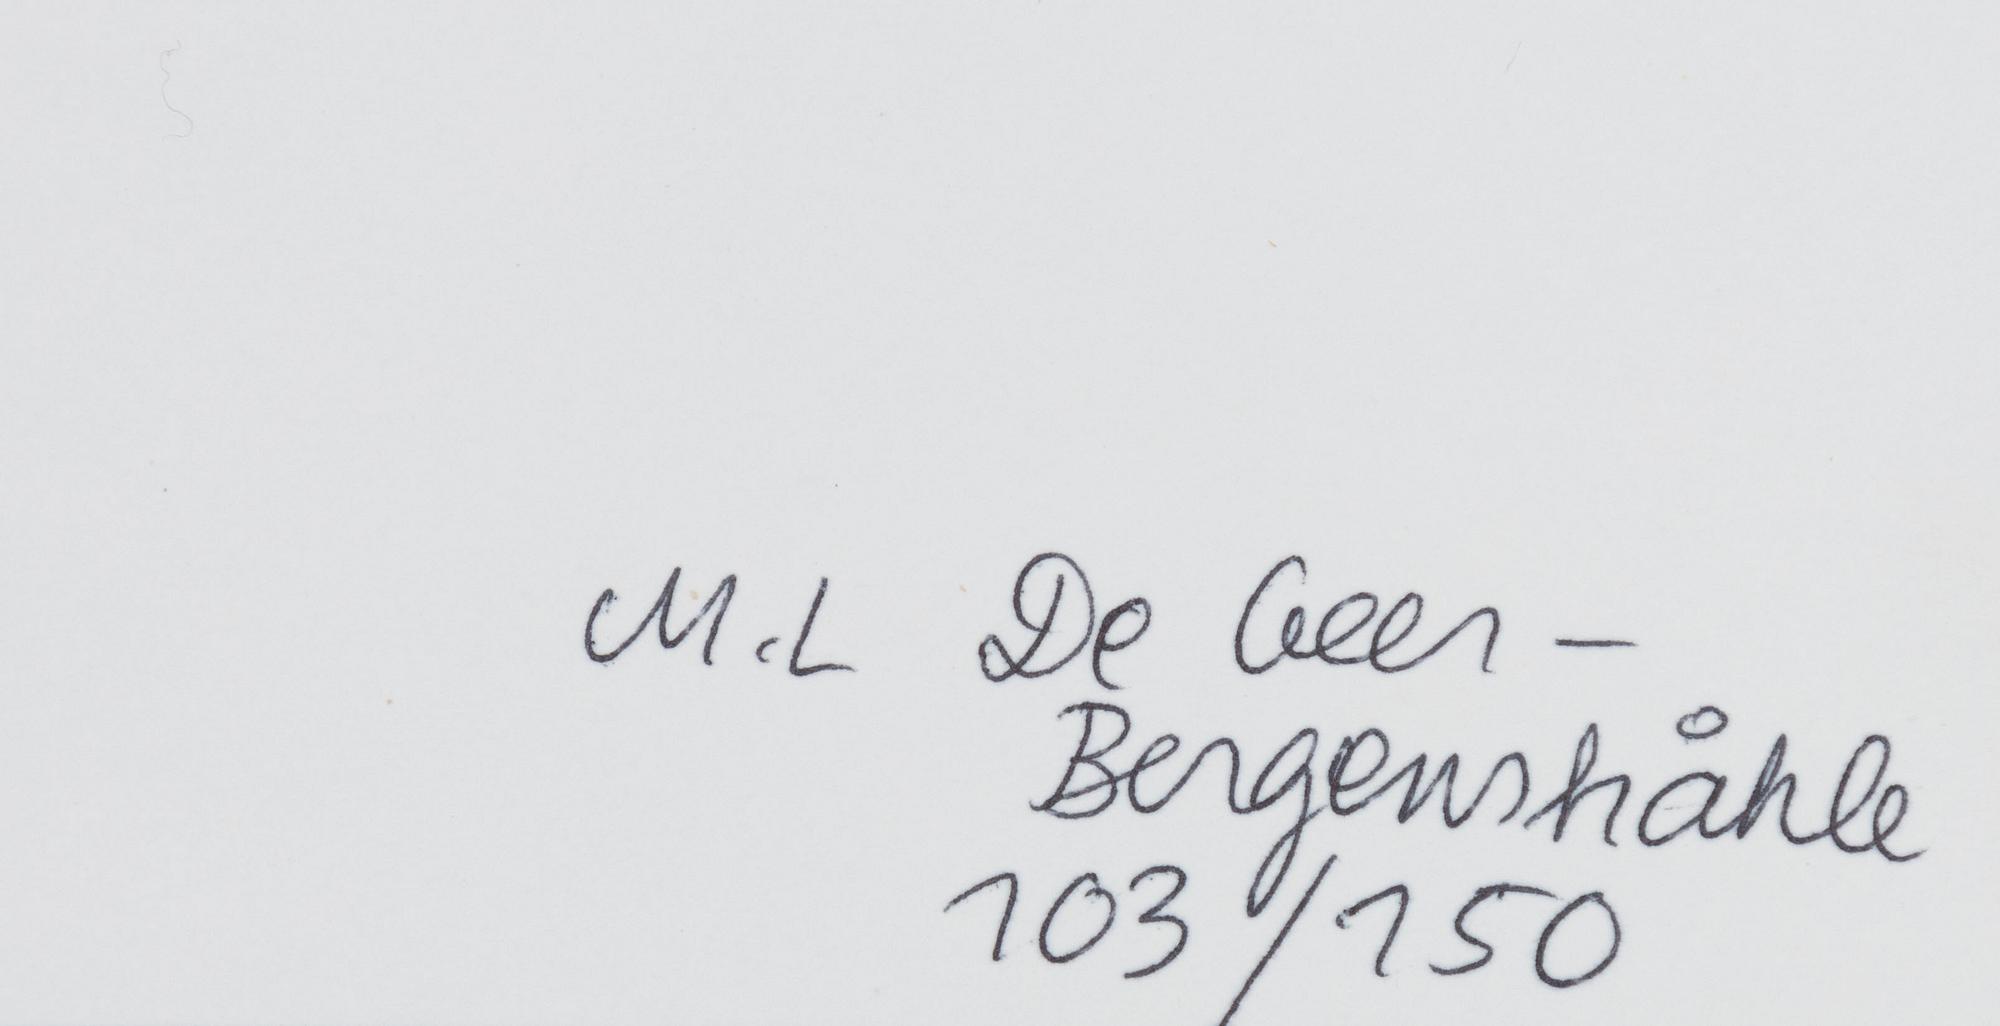 M.L De Geer -
Bergenstråhle
103/150